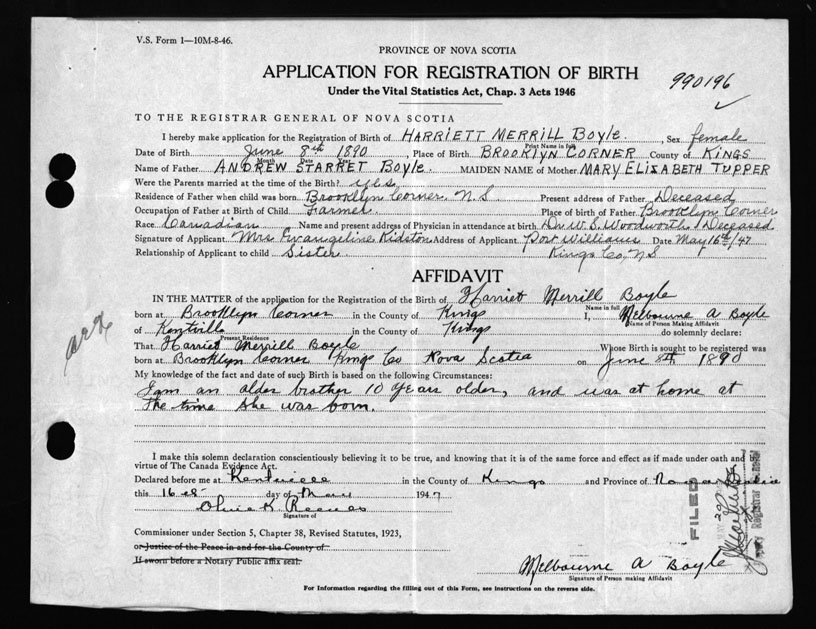 V.S. Form 1—10M-8-46.
PROVINCE OF NOVA SCOTIA
APPLICATION FOR REGISTRATION OF BIRTH
990196
Under the Vital Statistics Act, Chap. 3 Acts 1946
TO THE REGISTRAR GENERAL OF NOVA SCOTIA
I hereby make application for the Registration of Birth of HARRIETT MERRILL Boyle. , Sex female
Print Name in full
Date of Birth June 8th 1890 , Place of Birth BROOKLYN CORNER County of KINGS
Month Date Year
Name of Father ANDREW STARRET Boyle. MAIDEN NAME of Mother MARY ELIZABETH TUPPER
Were the Parents married at the time of the Birth? yes
Residence of Father when child was born. Brooklyn Corner N.S Present address of Father Deceased
Occupation of Father at Birth of Child Farmer Place of birth of Father Brooklyn Corner
Race Canadian Name and present address of Physician in attendance at birth Dr W.S. Woodworth / Deceased
Signature of Applicant Mrs Evangeline Kidston Address of Applicant Port Williams Date May 16th/47
Relationship of Applicant to child Sister Kings Co, N.S
AFFIDAVIT
IN THE MATTER of the application for the Registration of the Birth of Harriet Merrill Boyle
Name in full
born at Brooklyn Corner in the County of Kings I, Melbourne A Boyle
Name of Person Making Affidavit
of Kentville in the County of Kings do solemnly declare:
Present Residence
That Harriet Merrill Boyle Whose Birth is sought to be registered was
born at Brooklyn Corner Kings Co Nova Scotia on June 8th 1890
My knowledge of the fact and date of such Birth is based on the following Circumstances:
I am an older brother 10 years older, and was at home at
the time she was born.
I make this solemn declaration conscientiously believing it to be true, and knowing that it is of the same force and effect as if made under oath and
virtue of The Canada Evidence Act.
Declared before me at Kentville in the County of Kings and Province of Nova Scotia
this 16th day of May 1947
Signature of
Commissioner under Section 5, Chapter 38, Revised Statutes, 1923,
or Justice of the Peace in and for the County of
If sworn before a Notary Public affix seal.
FILED
Registrar General
Melbourne A Boyle
Signature of Person making Affidavit
For Information regarding the filling out of this Form, see instructions on the reverse side.